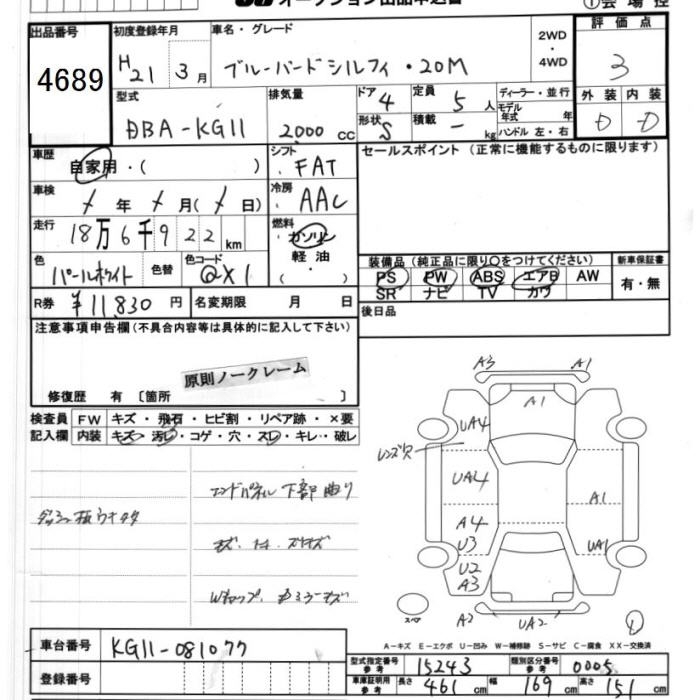 オークション出品申込書
①会場控
出品番号
4689
初度登録年月
H21 3月
車名・グレード
ブルーバードシルフィ・20M
2WD・4WD
評価点
3
型式
DBA-KG11
排気量
2000cc
ドア
4
形状
S
定員
5人
積載
- kg
ディーラー・並行
モデル年式 年
ハンドル 左・右
外装 内装
D D
車歴
自家用・( )
シフト
FAT
セールスポイント(正常に機能するものに限ります)
車検
/年 /月(/日)
冷房
AAC
走行
18万6千922km
燃料
ガソリン
軽油
・( )
色
パールホワイト
色替
色コード
QX1
装備品(純正品に限り○をつけてください)
PS PW ABS エアB AW
SR ナビ TV カワ
新車保証書
有・無
R券 ¥11,830円
名変期限 月 日
後日品
注意事項申告欄(不具合内容等は具体的に記入して下さい)
原則ノークレーム
修復歴 有〔箇所 〕
検査員記入欄
FW キズ・飛石・ヒビ割・リペア跡・×要
内装 キズ・汚レ・コゲ・穴・スレ・キレ・破レ
エンドパネル下部曲り
A3 A1
A1
UA4
レンズ欠
UA4
A1
A4
U3
UA1
U2
A3
A2 UA2
スペア
①
A-キズ E-エクボ U-凹み W-補修跡 S-サビ C-腐食 XX-交換済
車台番号
KG11-081077
登録番号
型式指定番号参考
15243
類別区分番号参考
0005
車庫証明用参考
長さ 461cm 幅 169cm 高さ 151cm